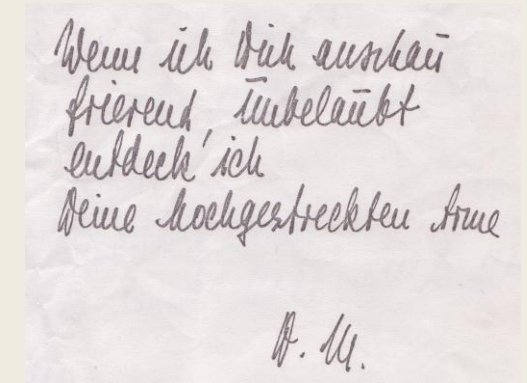 Wenn ich Dich anschau
frierend, unbelaubt
entdeck' ich
Deine hochgestreckten Arme
D. M.